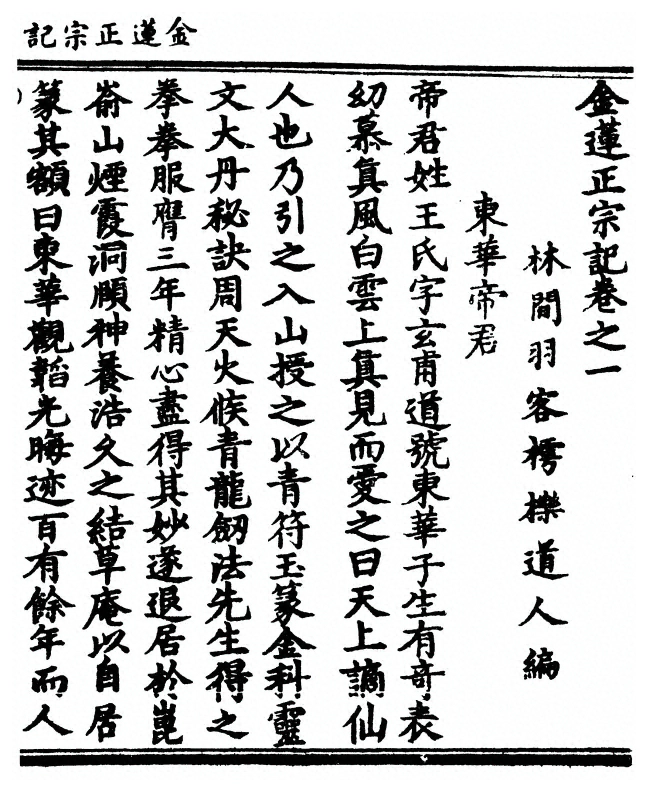 金蓮正宗記
金蓮正宗記卷之一
林間羽客樗櫟道人編
東華帝君
帝君姓王氏字玄甫道號東華子生有奇表
幻慕真風白雲上真見而愛之曰天上謫仙
人也乃引之入山授之以青符玉篆金科靈
文大丹秘訣周天火候青龍劒法先生得之
拳拳服膺三年精心盡得其妙遂退居於崑
崳山煙霞洞頤神養浩久之結草庵以自居
篆其額曰東華觀韜光晦迹百有餘年而人